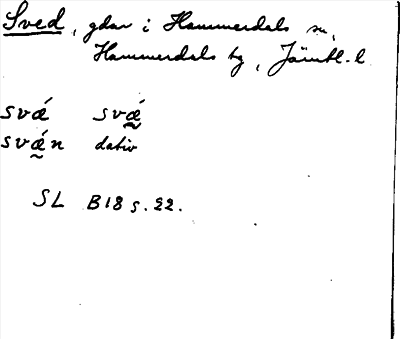 Sved, gdar i Hammerdals sn,
Hammerdals by, Jämtl. l.
svǽ svǽ̰
svǽ̰n dativ
SL B18 s. 22.